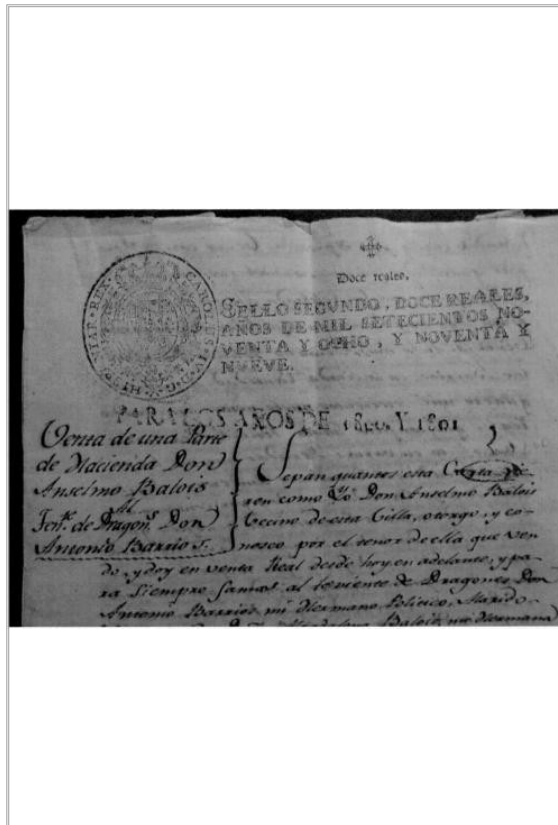 Doce reales.
SELLO SEGUNDO, DOCE REALES,
AÑOS DE MIL SETECIENTOS NO-
VENTA Y OCHO, Y NOVENTA Y
NUEVE.
PARA LOS AÑOS DE 1800. Y 1801
Venta de una Parte
de Hacienda Don
Anselmo Balois
al
Tente. de Dragons. Don
Antonio Barrios.
Sepan quantos esta Carta vie-
ren como Yo Don Anselmo Balois
Vecino de esta Villa, otorgo, y co-
nosco por el tenor de ella que ven
do, y doy en venta Real desde hoy en adelante, y pa-
ra siempre jamas al teniente de Dragones Don
Antonio Barrios, mi Hermano Politico, Marido
Balois, mi Hermana